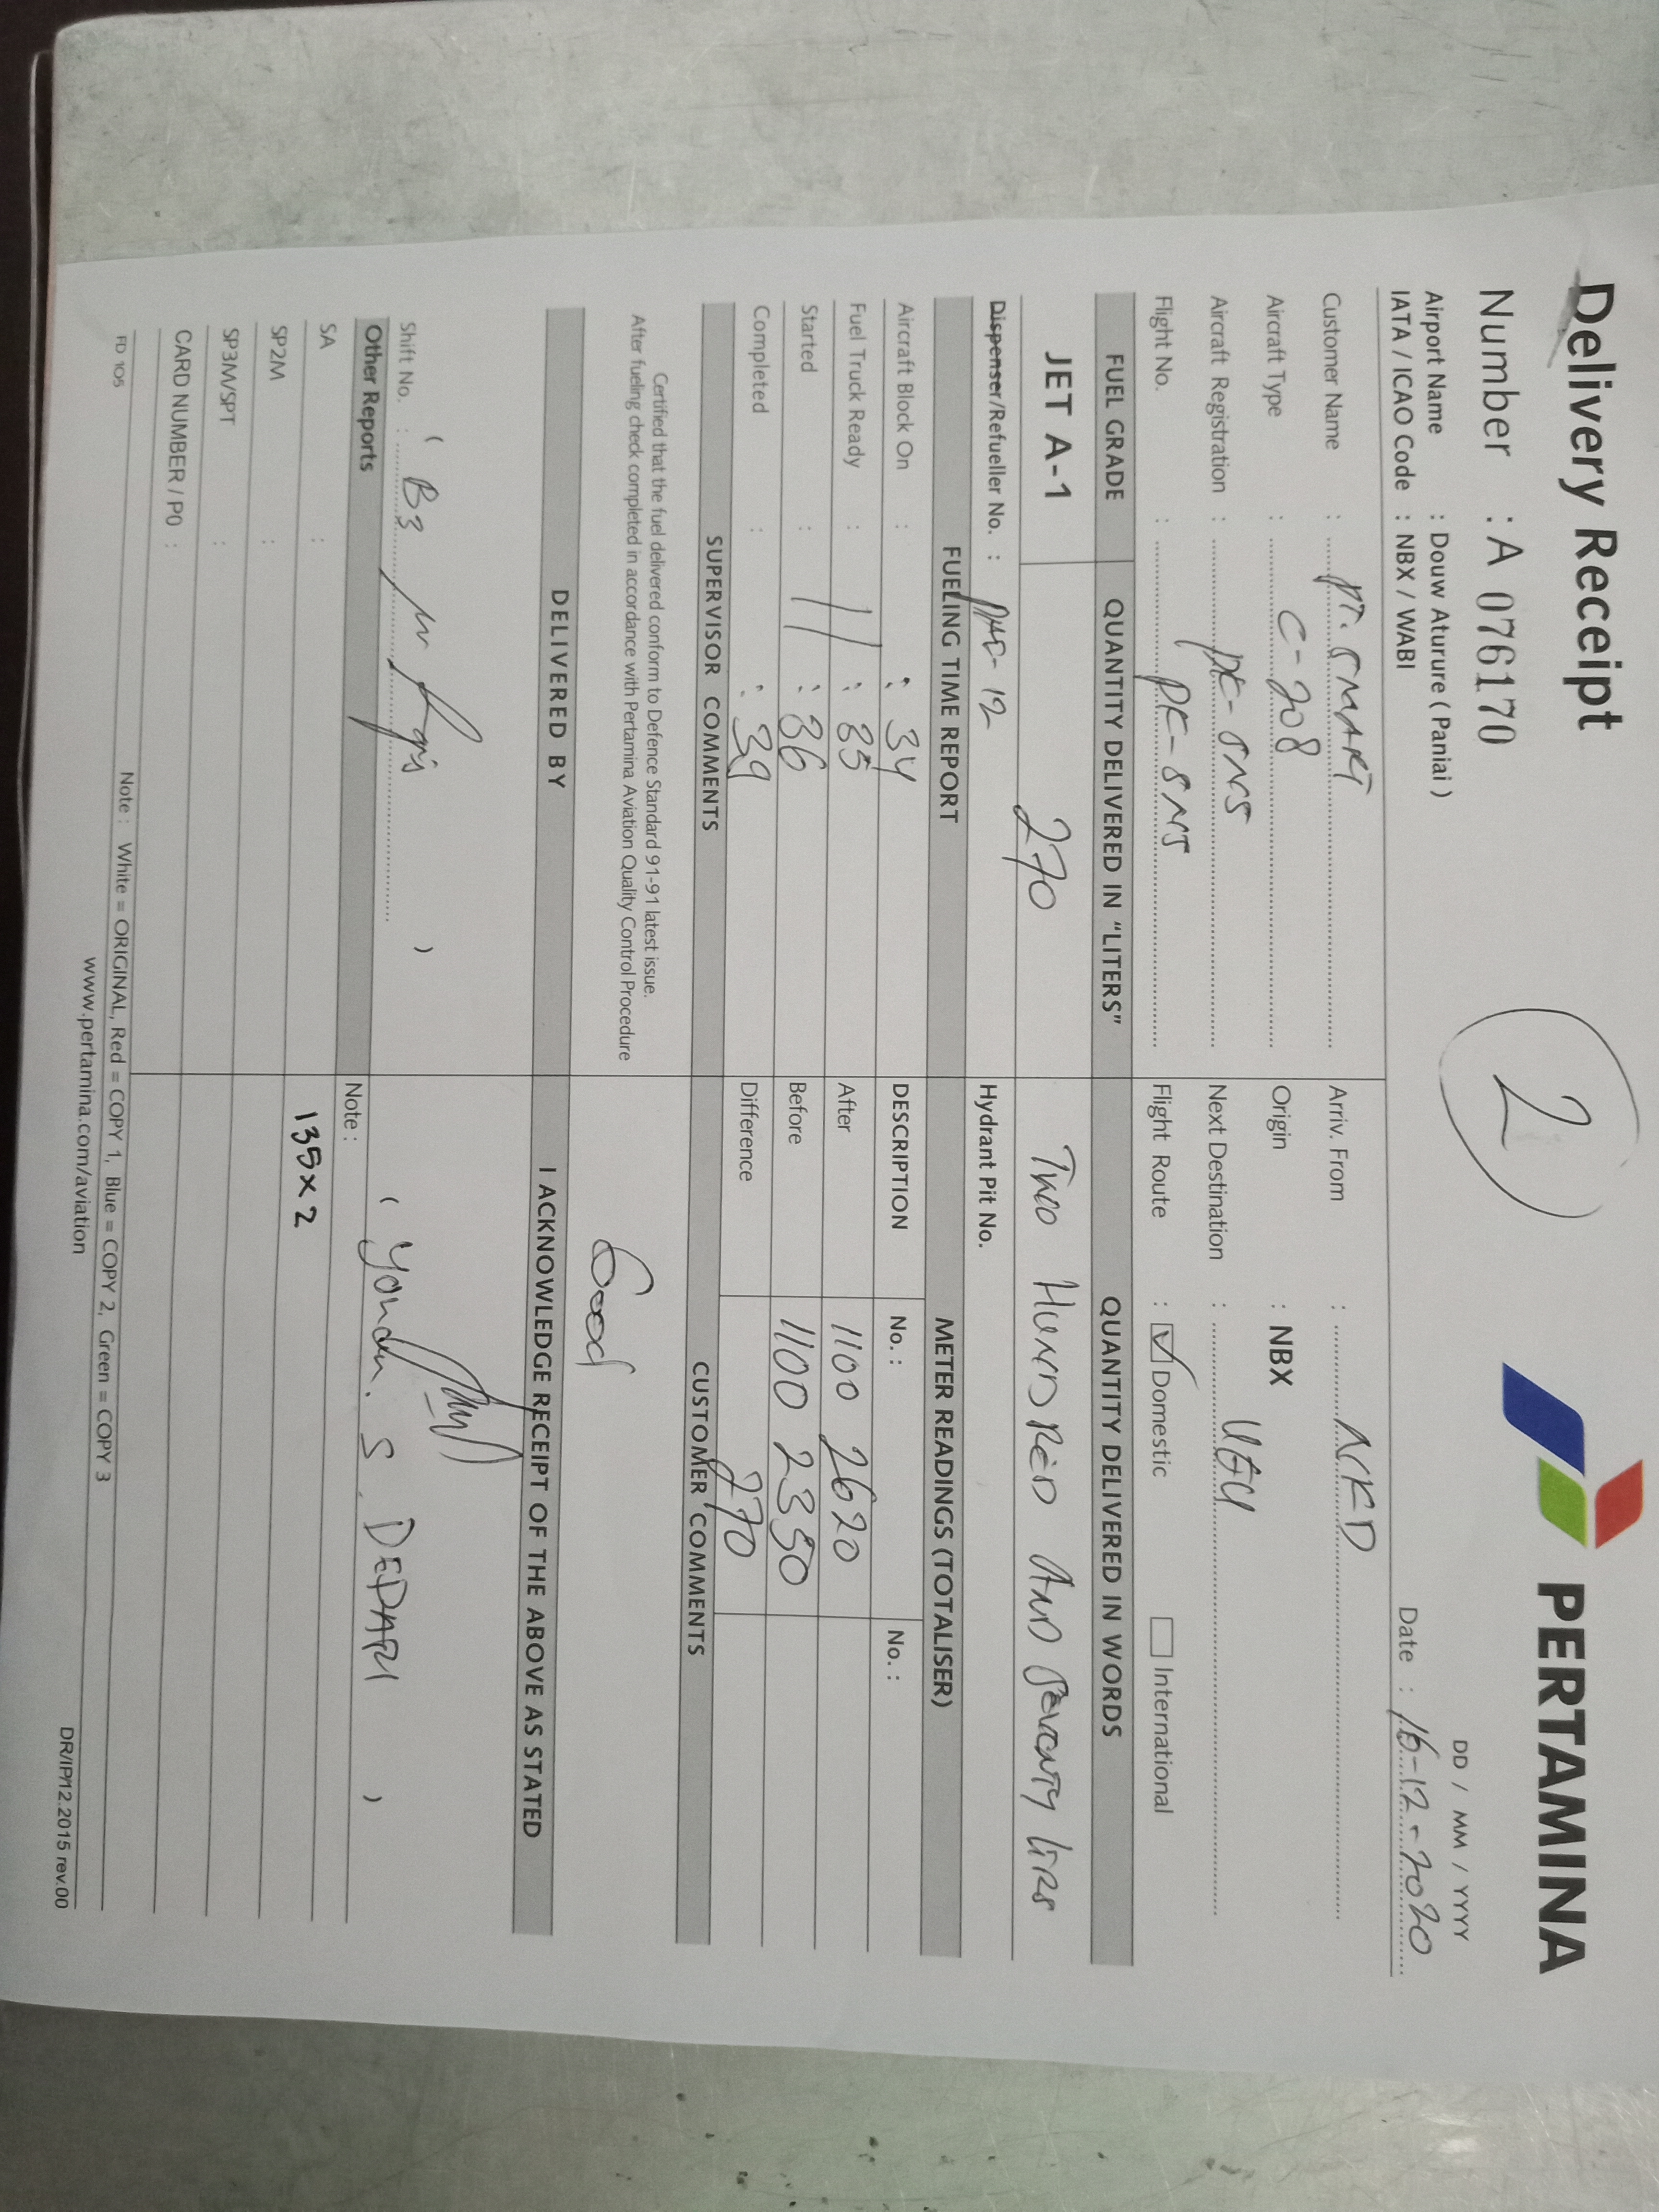 Delivery Receipt
2
PERTAMINA
Number : A 076170
DD / MM / YYYY
Airport Name : Douw Aturure ( Paniai )
IATA / ICAO Code : NBX / WABI
Date : 16-12-2020
Customer Name : PT. SMART
Arriv. From :
Aircraft Type : C-208
Origin : NBX
Aircraft Registration : PK-SNS
Next Destination :
Flight No. : PK-SNS
Flight Route : Domestic International
FUEL GRADE QUANTITY DELIVERED IN "LITERS" QUANTITY DELIVERED IN WORDS
JET A-1 270 Two HUNDRED AND Seventy
Dispenser/Refueller No. : -12
Hydrant Pit No.
FUELING TIME REPORT METER READINGS (TOTALISER)
Aircraft Block On : : 34
DESCRIPTION No. : No. :
Fuel Truck Ready : 11 : 35
After 1100 2620
Started : : 36
Before 1100 2350
Completed : : 39
Difference 270
SUPERVISOR COMMENTS CUSTOMER COMMENTS
Certified that the fuel delivered conform to Defence Standard 91-91 latest issue.
After fueling check completed in accordance with Pertamina Aviation Quality Control Procedure
Good
DELIVERED BY I ACKNOWLEDGE RECEIPT OF THE ABOVE AS STATED
( )
Shift No. : B3
( S. DEPARI )
Other Reports Note :
SA :
135 x 2
SP2M :
SP3M/SPT :
CARD NUMBER / P0 :
FD 105
Note : White = ORIGINAL, Red = COPY 1, Blue = COPY 2, Green = COPY 3
www.pertamina.com/aviation
DR/IP/12.2015 rev.00